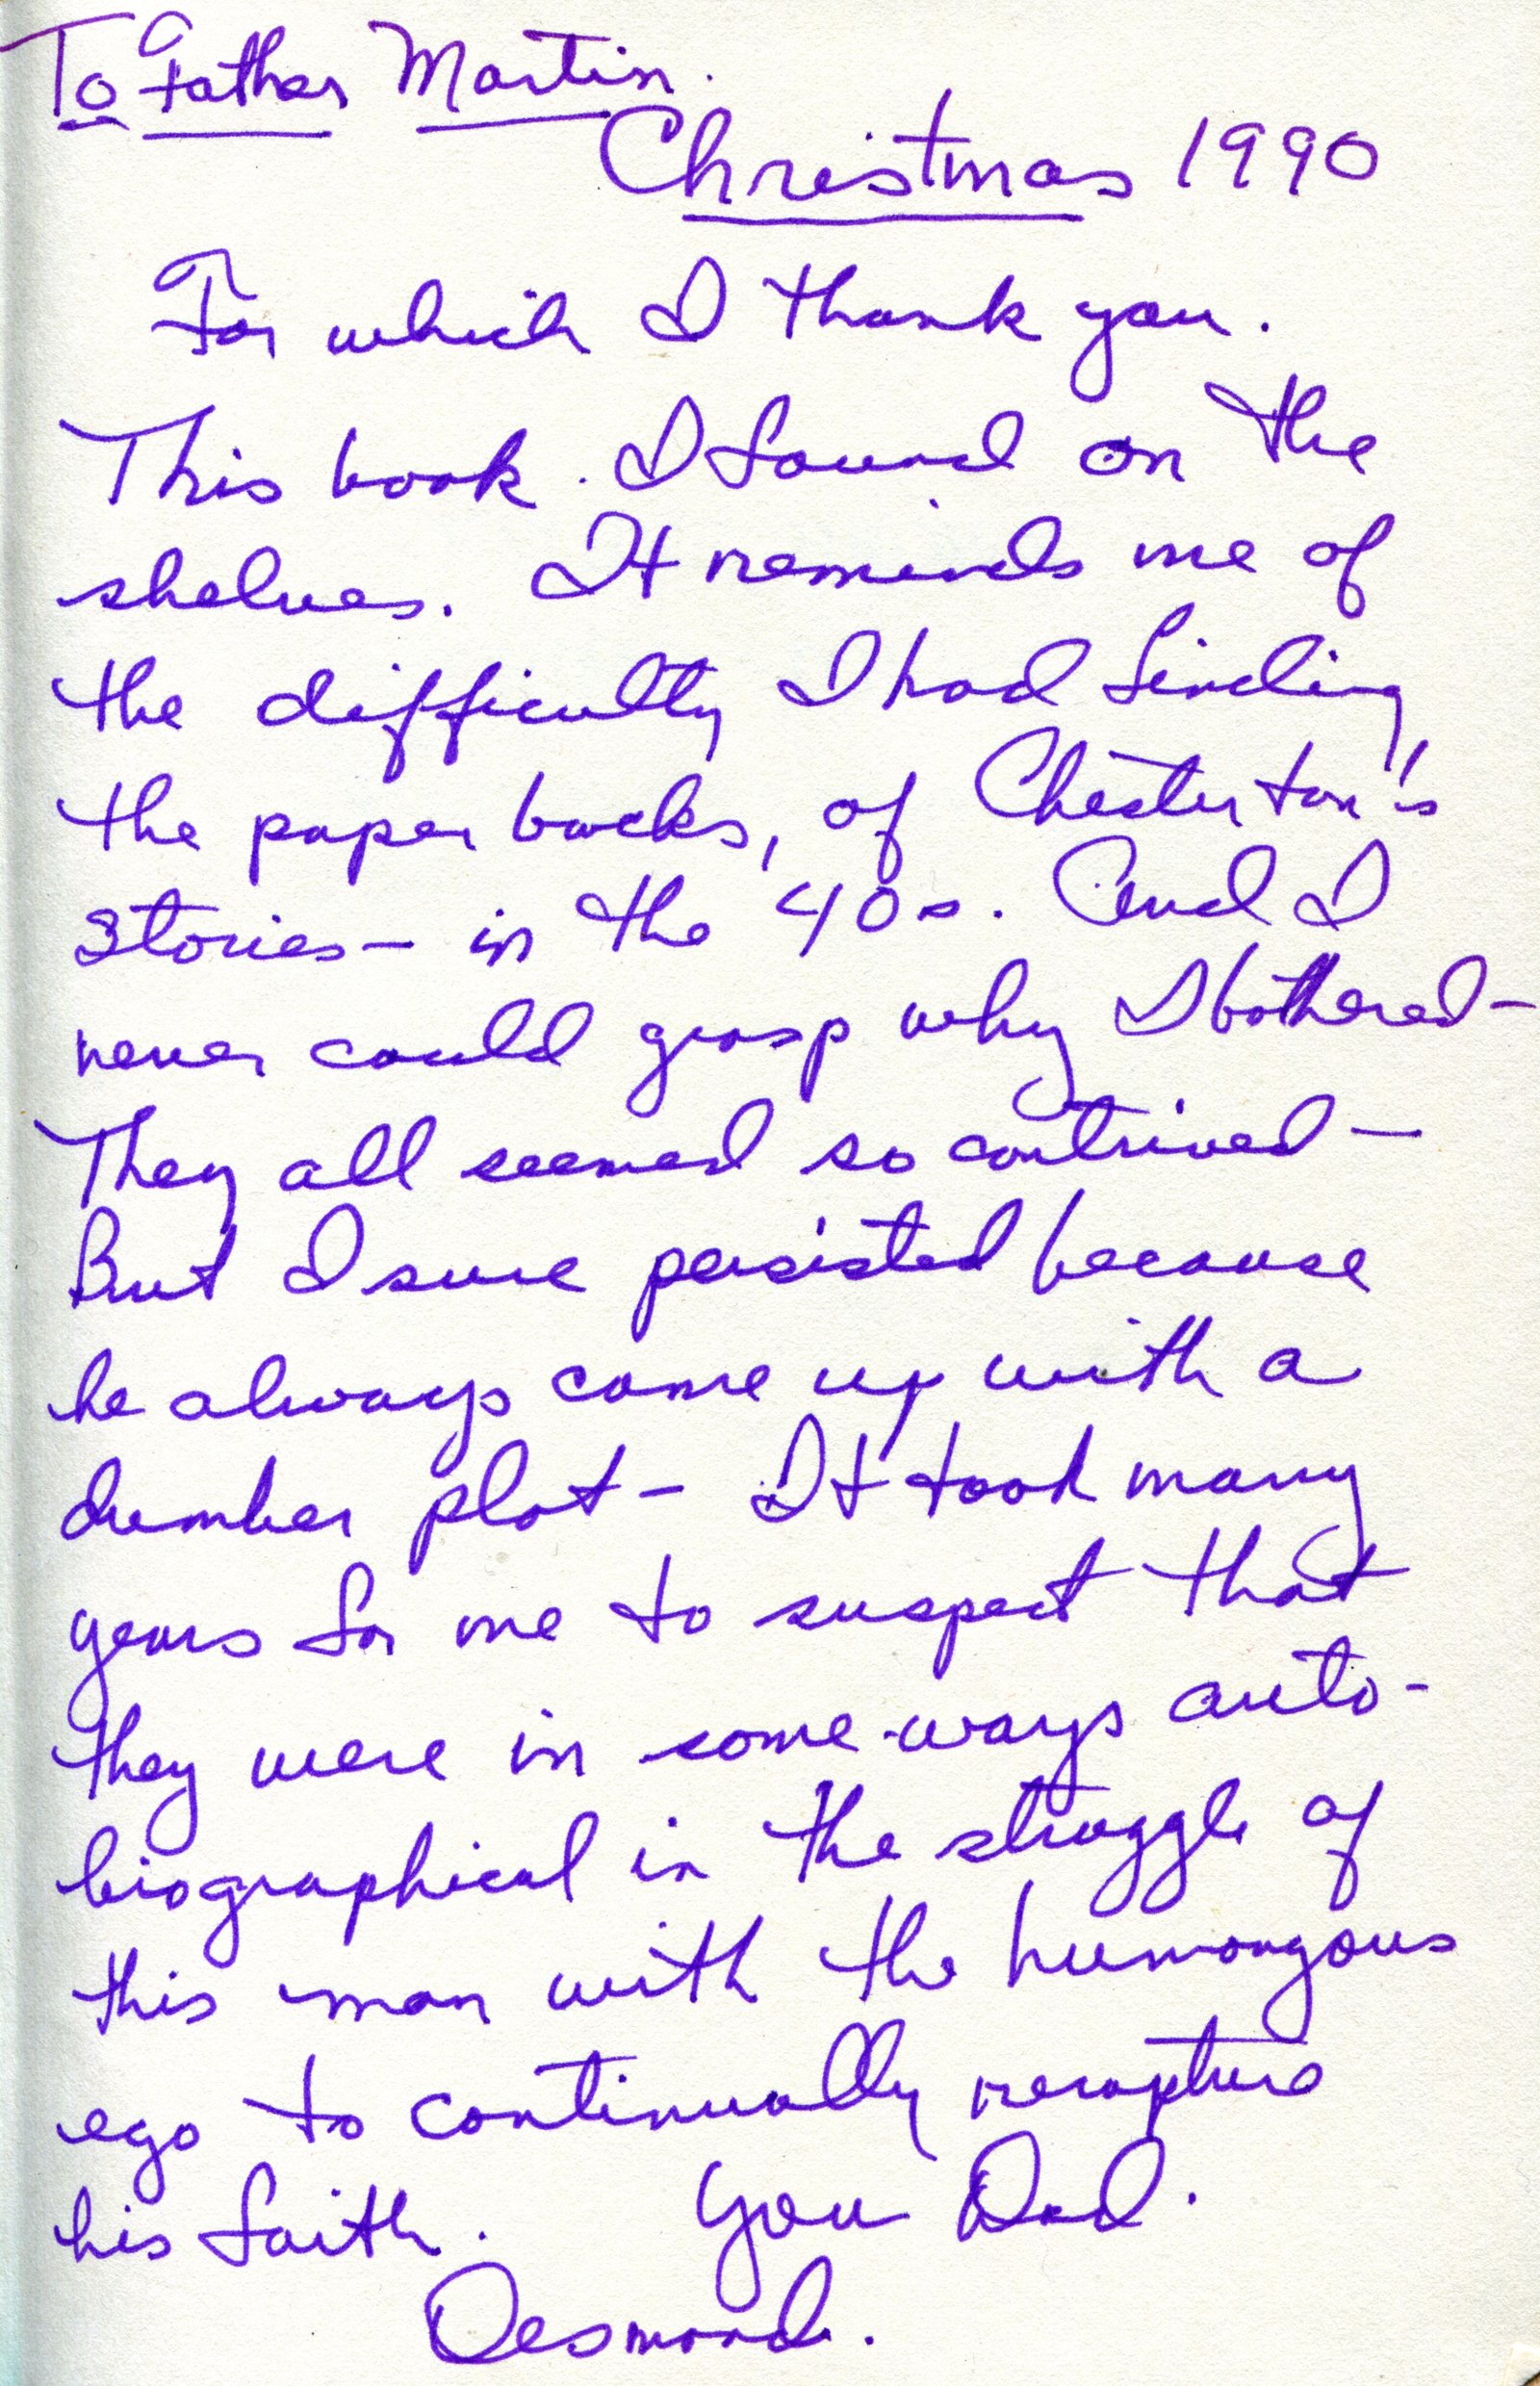 To Father Martin.
Christmas 1990
For which I thank you.
This book. I found on the
shelves. It reminds me of
the difficulty I had finding
the paper backs, of Chesterton's
Stories - in the 40s. And I
never could grasp why I bothered -
They all seemed so contrived -
But I sure persisted because
he always came up with a
dumber plot - It took many
years for me to suspect that
they were in some ways auto-
biographical in the struggle of
this man with the humongous
ego to continually recapture
his faith. You Dad.
Desmond.